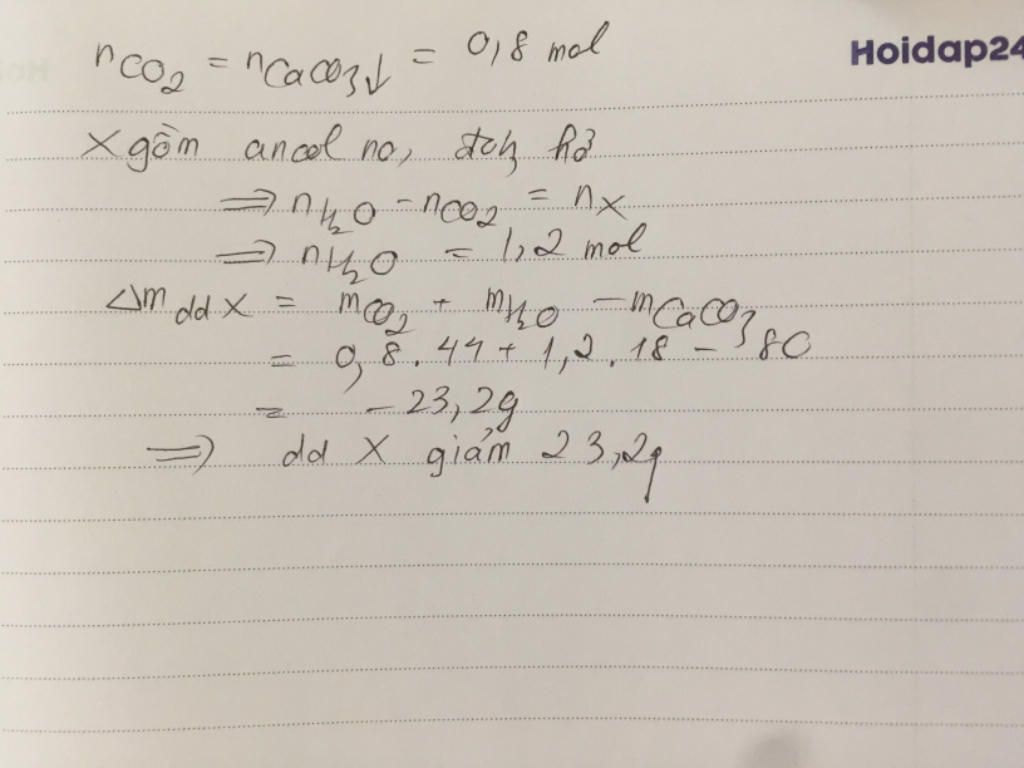 nCO2 = nCaCO3↓ = 0,8 mol
Hoidap24
X gồm ancol no, đch hở
⇒ nH2O - nCO2 = nX
⇒ nH2O = 1,2 mol
Δm dd X = mCO2 + mH2O - mCaCO3
= 0,8.44 + 1,2.18 - 80
= -23,2g
⇒ dd X giảm 23,2g